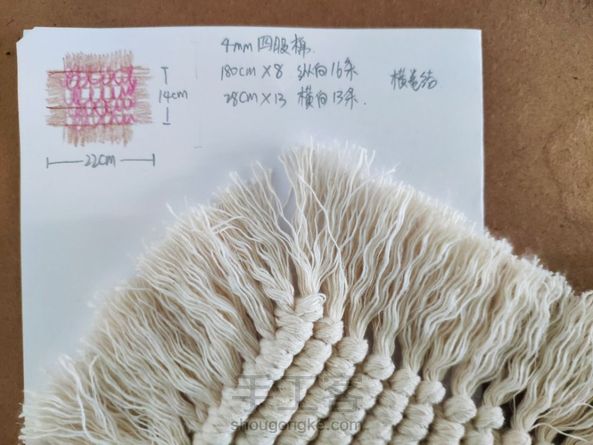 4mm 四股棉.
180cm×8 纵向16条
横卷结
28cm×13 横向13条.
14cm
22cm
手工客
shougongke.com